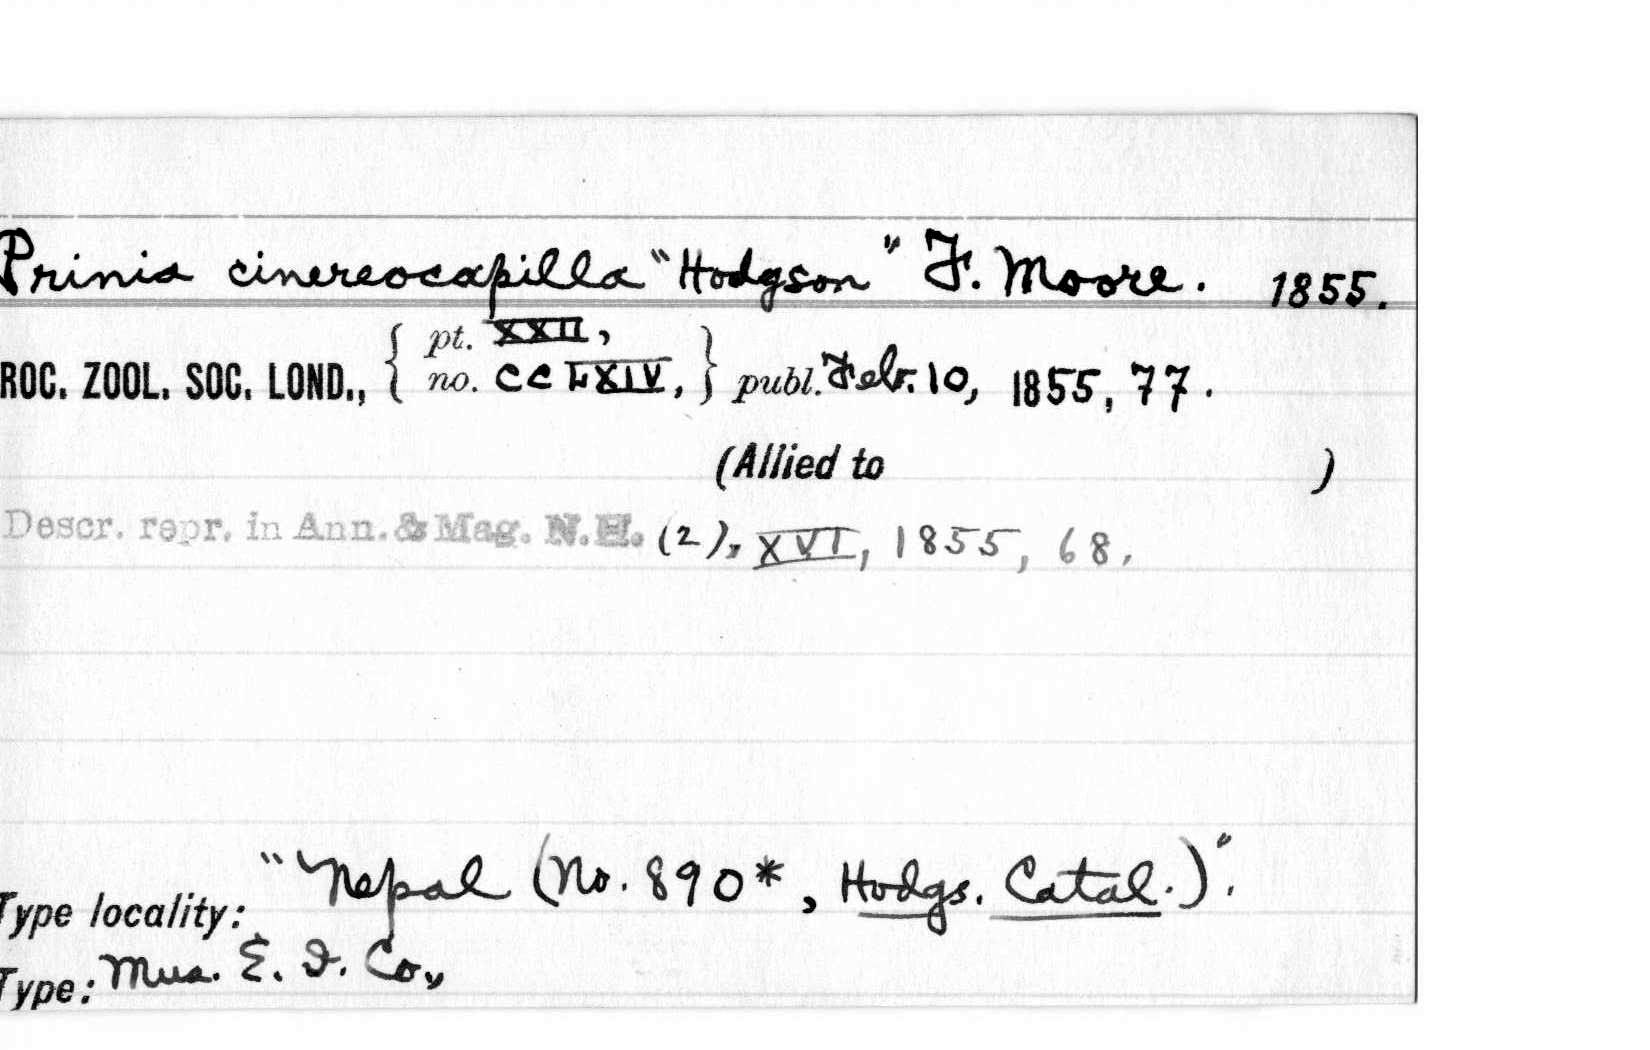 Prinia cinereocapilla "Hodgson" F. Moore. 1855.
pt. XXII,
ROC. ZOOL. SOC. LOND., { no. CCLXIV, } publ. Febr. 10, 1855, 77.
(Allied to )
Descr. repr. in Ann. & Mag. N.H. (2), XVI, 1855, 68.
Type locality: "Nepal (No. 890*, Hodgs. Catal.)".
Type: Mus. E. I. Co.,